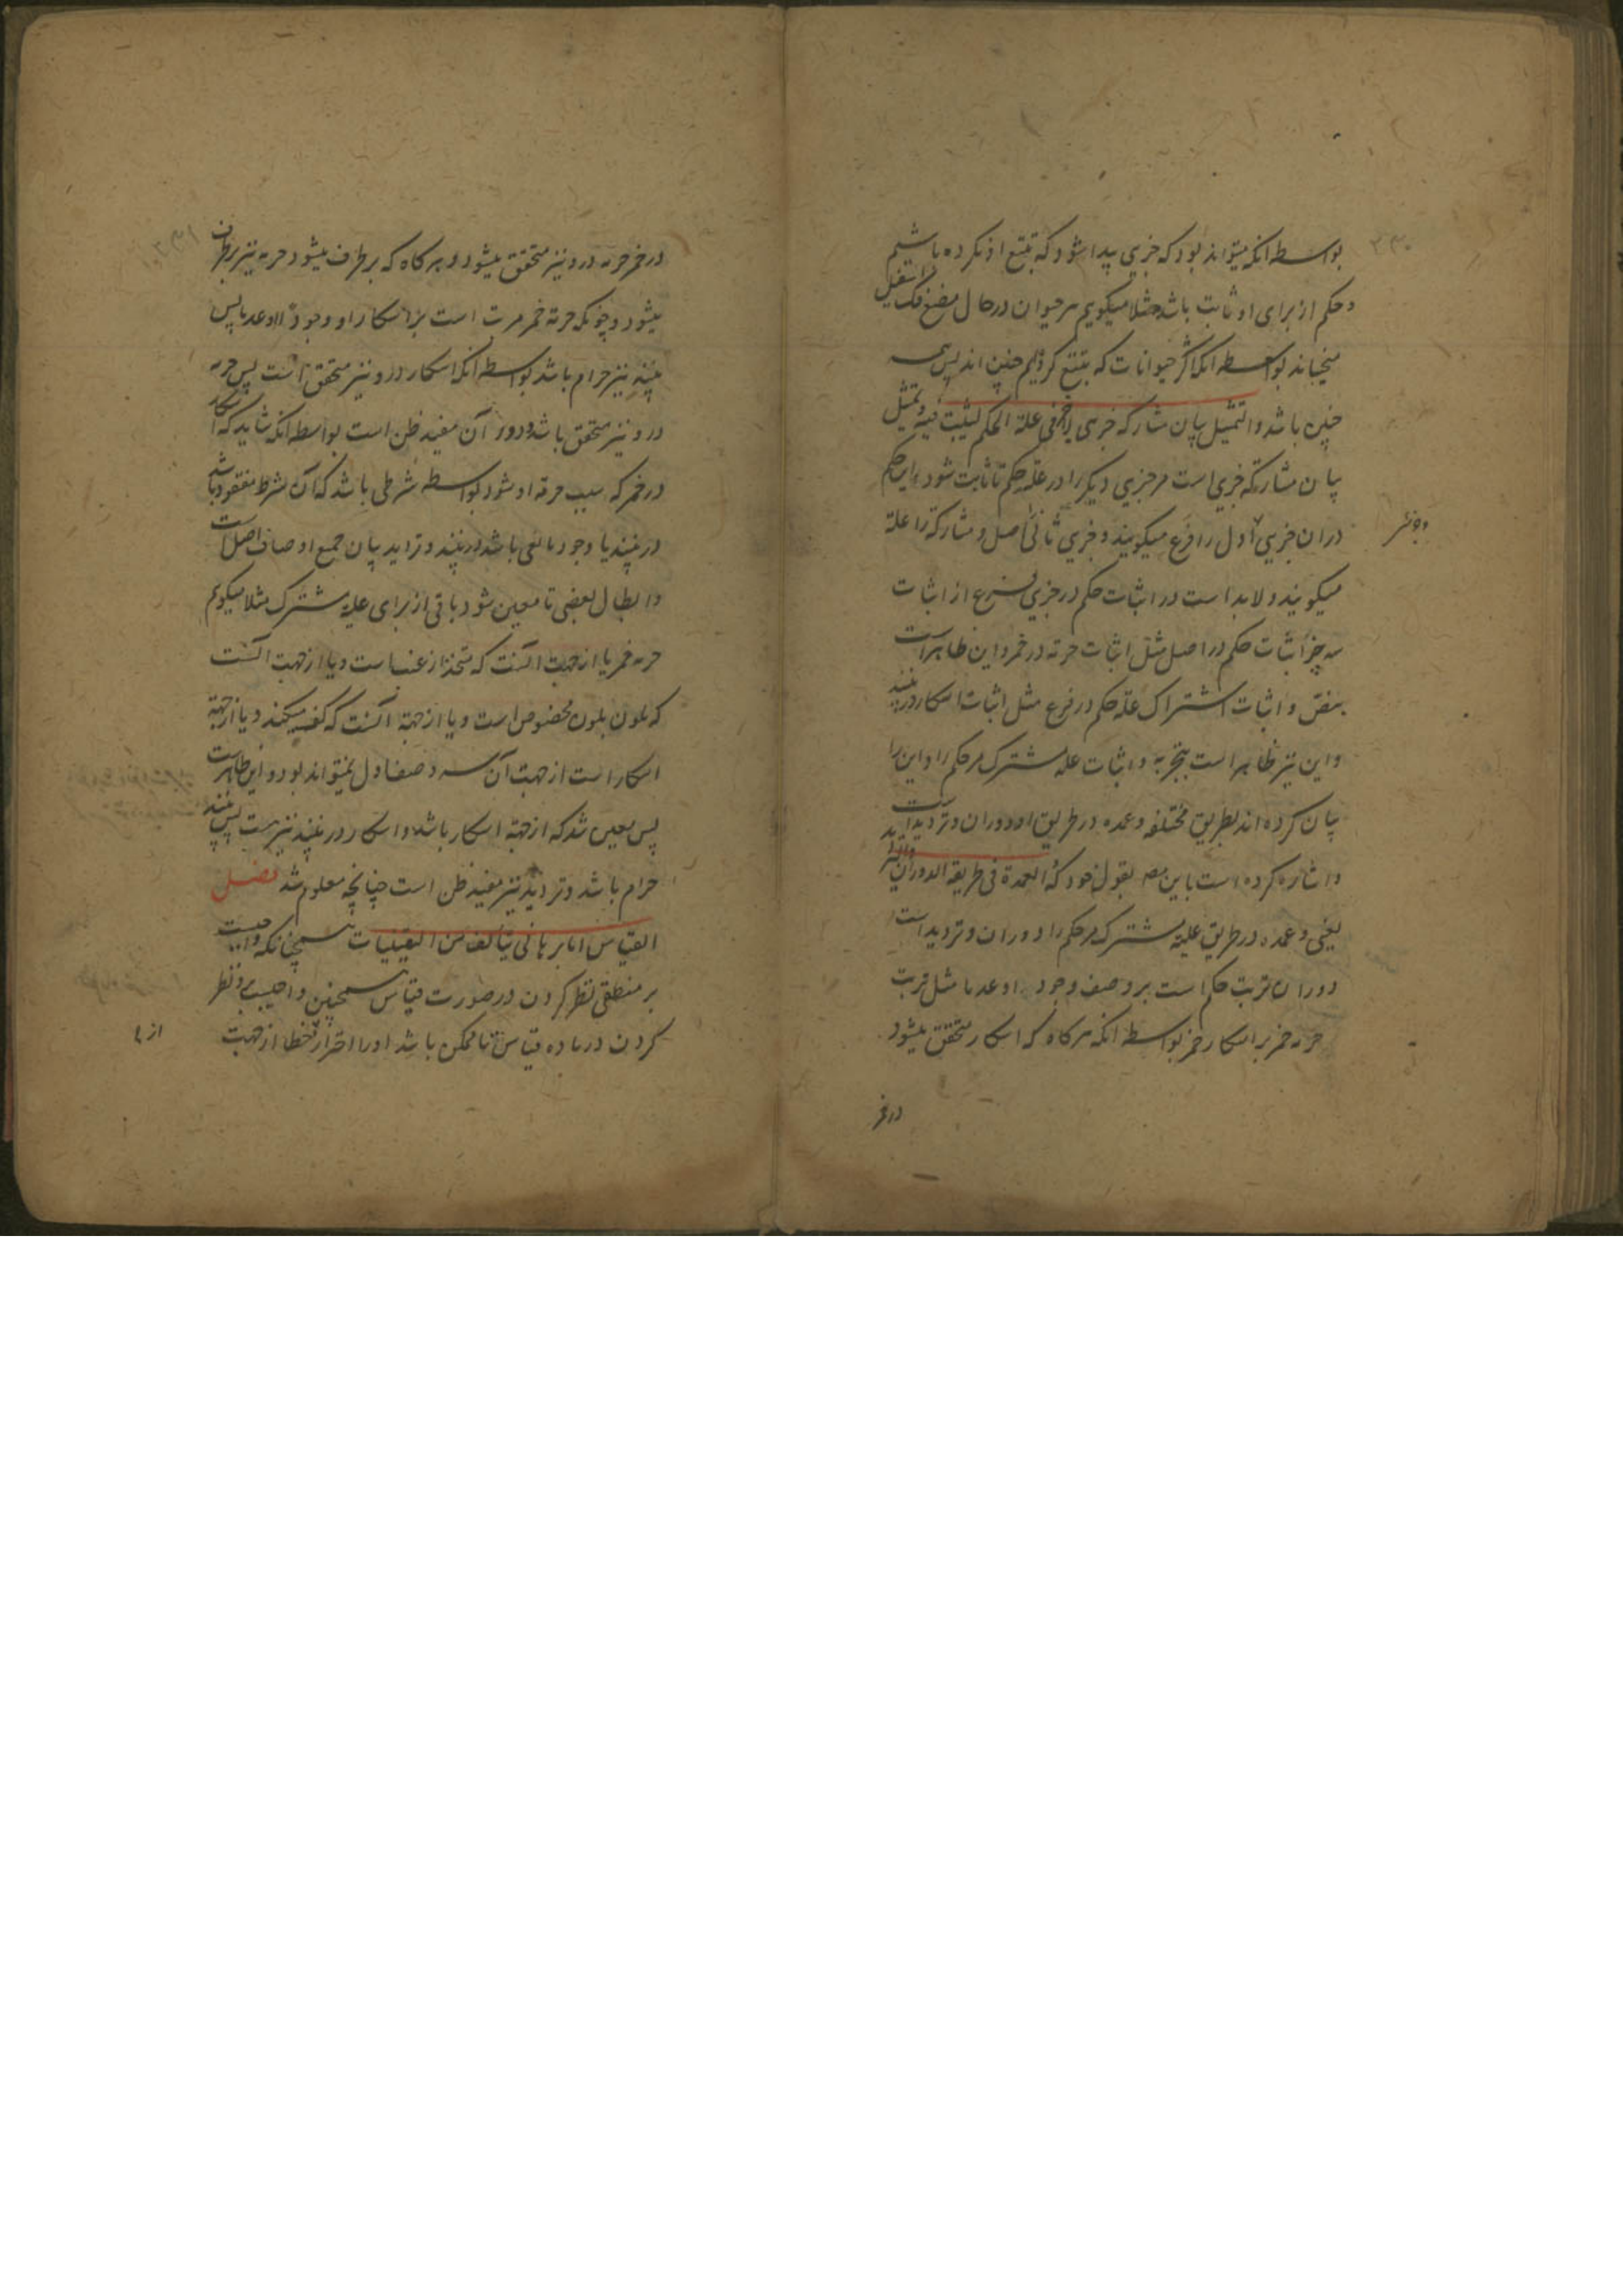 بواسطه انکه میتواند بود که جزیی پیدا شود که تتبع او نکرده باشیم
و حکم از برای او ثابت باشد مثلا میکویم هر حیوان در حال مضغ فک اسفل را
میجنباند بواسطه انکه اکثر حیوانات که تتبع کردیم چنین اند پس همه
چنین باشد والتمثیل بیان مشارکة جزیی لاخر فی علة الحکم لیثبت فیه و تمثیل
بیان مشارکة جزیی است مر جزیی دیکر را در علة حکم تا ثابت شود این حکم
دران جزیی اول را فرع میکویند و جزیی ثانی اصل و مشارکة را علة
میکویند و لابد است در اثبات حکم در جزیی فرع از اثبات
سه چیز اثبات حکم در اصل مثل اثبات حرمة در خمر و این ظاهر است
بنص و اثبات اشتراک علة حکم در فرع مثل اثبات اسکار در نبیذ
و این نیز ظاهر است بتجربه و اثبات علة مشترک مر حکم را و این را
بیان کرده اند بطریق مختلفه و عمده در طریق او دوران و تردید است
و اشاره کرده است باین مصـ بقول خود که العمدة فی طریقه الدوران والتردید
یعنی و عمده در طریق علیة مشترک مر حکم را دوران و تردید است
دوران ترتب حکم است بر وصف وجودا و عدما مثل ترتب
حرمة خمر بر اسکار خمر بواسطه انکه هر کاه که اسکار متحقق میشود
در خمر
در خمر حرمة درو نیز متحقق میشود و هر کاه که بر طرف میشود حرمة نیز بر طرف
میشود و چونکه حرمة خمر مرتب است بر اسکار او وجودا او عدما پس
نبیذ نیز حرام باشد بواسطه انکه اسکار درو نیز متحقق است پس حرمة
درو نیز متحقق باشد و دوران مفید ظن است بواسطه انکه شاید که اسکار
در خمر که سبب حرمة او شود بواسطه شرطی باشد که آن شرط مفقود باشد
در نبیذ یا وجود مانعی باشد در نبیذ و تردید بیان جمیع اوصاف اصل است
و ابطال بعضی تا معین شود باقی از برای علیة مشترک مثلا میکویم
حرمة خمر یا از جهت انست که متخذ از عنب است و یا از جهت انست
که ملون بلون مخصوص است و یا از جهة انست که کف میکند و یا از جهة
اسکار است از جهت آن سه وصف اول نمیتواند بود و این ظاهر است
پس معین شد که از جهة اسکار باشد و اسکار در نبیذ نیز هست پس نبیذ
حرام باشد و تردید نیز مفید ظن است چنانچه معلوم شد فصل
القیاس اما برهانی یتالف من الیقینیات همچنانکه واجبست
بر منطقی نظر کردن در صورت قیاس همچنین واجبست برو نظر
کردن در ماده قیاس تا ممکن باشد او را احتراز خطا از جهت